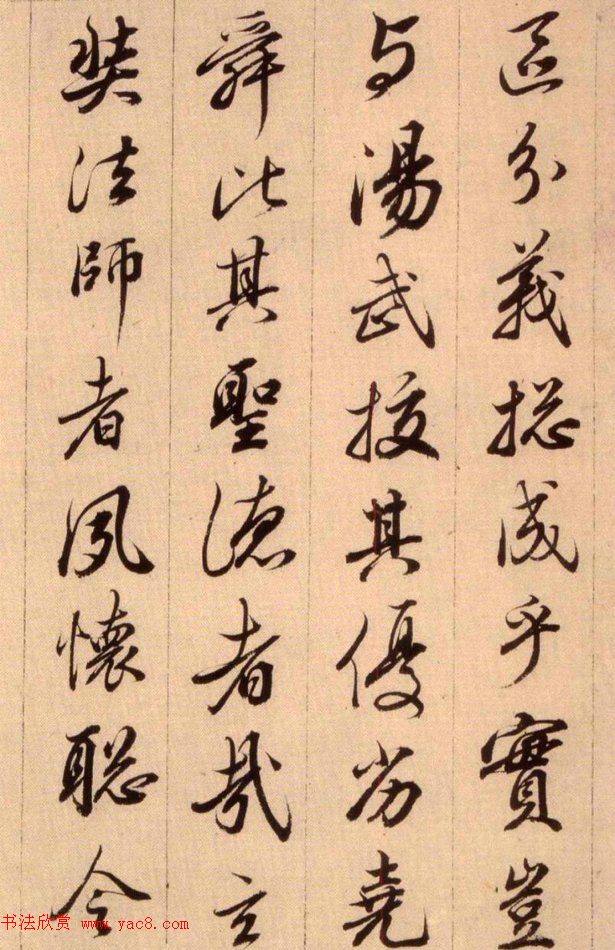 区分義捴成乎實豈
与湯武挍其優劣堯
舜比其聖德者哉玄
奘法師者夙懷聡令
书法欣赏 www.yac8.com